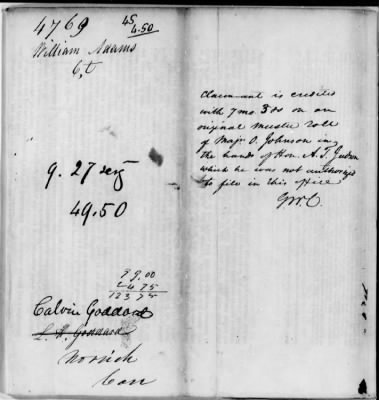 4769 45
4.50
William Adams
Ct
9. 27 serg
49.50
99.00
24 75
123 75
Calvin Goddard
Goddard
Norwich
Con
Claimant is credited
with 7 mo. 3 ds on an
original muster roll
of Majr. O. Johnson in
the hands of Hon. A. T. Judson
which he was not authorized
to file in this office